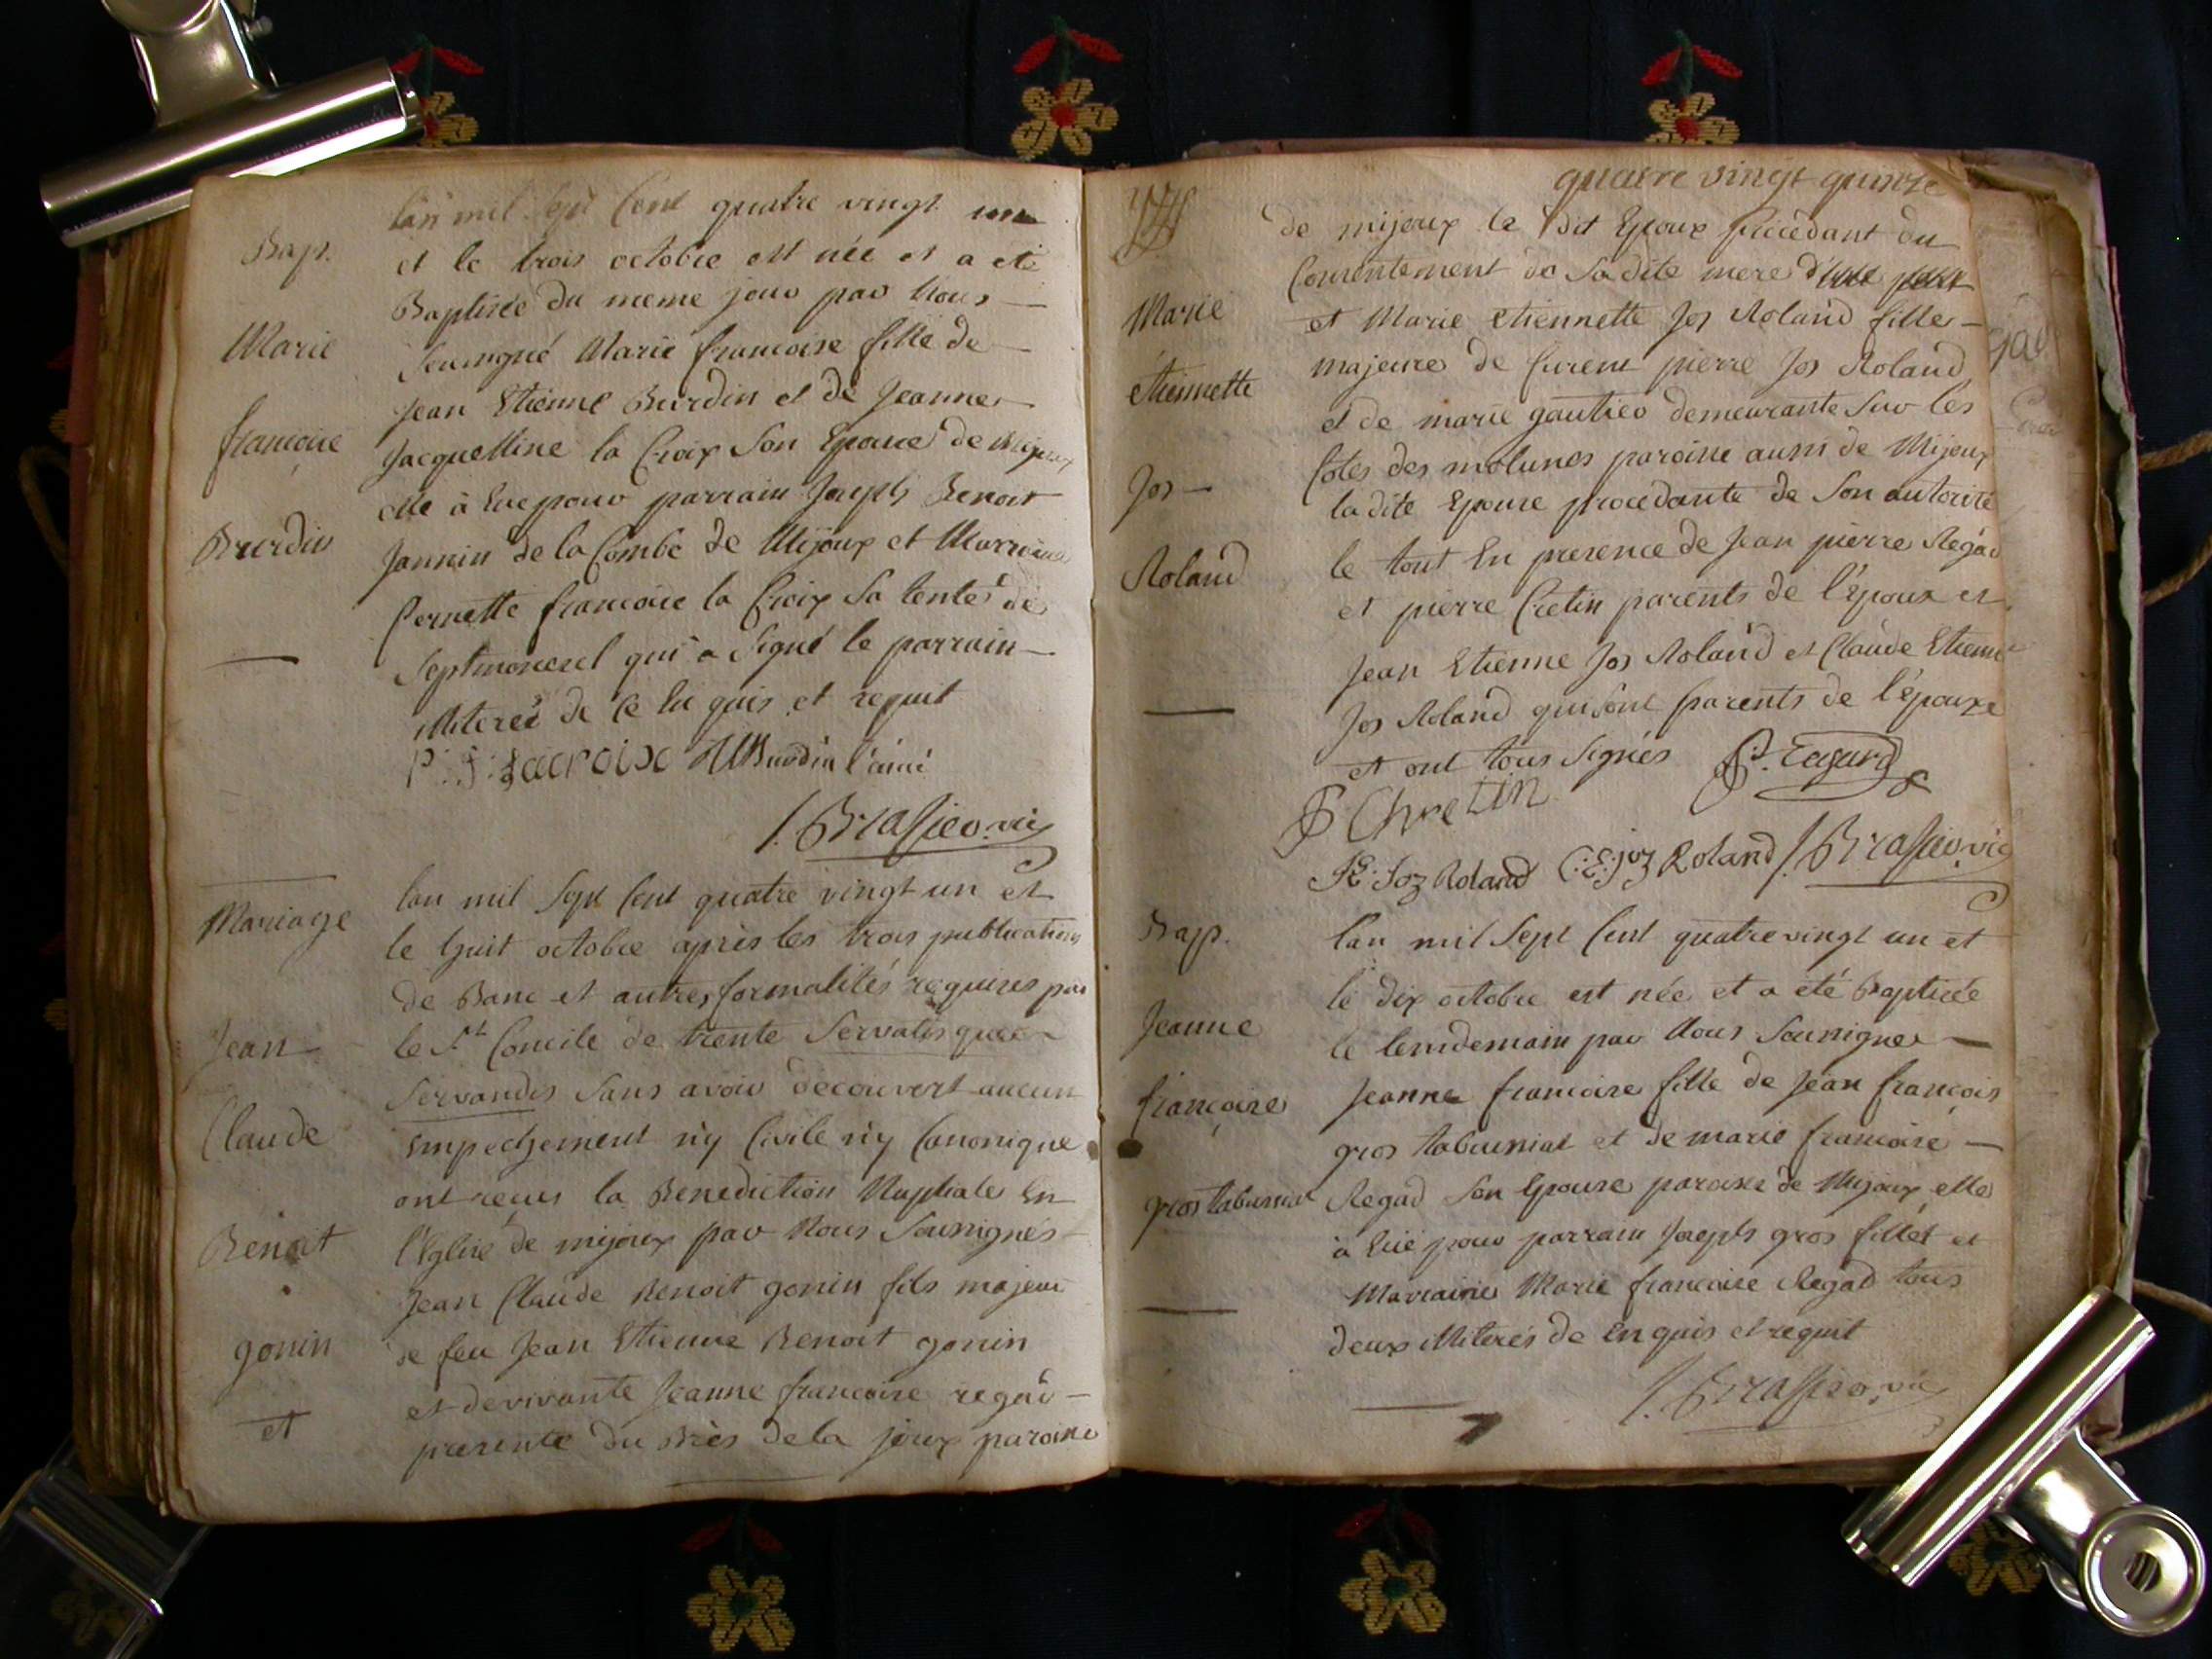 Bap.
lan mil sept Cent quatre vingt un
et le trois octobre est née et a eté
Baptisée du meme jour par Nous
Marie
Sousigné Marie francoise fille de
Jean Etienne Burdin et de Jeanne
francoise
Jacquelline la Croix Son Epouse de Mijoux
elle à Eue pour parrain Joseph Benoit
Burdin
Jannin de la Combe de Mijoux et Marraine
Pernette francoise la Croix Sa tente de
Septmoncel qui a Signé le parrain
illiteré de ce En quis et requit
P : J : Lacroix Burdin l'ainé
J. Brassier vic
Mariage
lan mil Sept Cent quatre vingt un et
le huit octobre après les trois publications
de Banc et autres formalités requises par
Jean
le St Concile de trente Servatis que
Servandis Sans avoir découvert aucun
Claude
Empechement n'y Civile n'y Canonique
ont reçus la Benediction Nuptiale En
Benoit
l'Eglise de mijoux par Nous Sousignés
Jean Claude Benoit gonin fils majeur
gonin
de feu Jean Etienne Benoit gonin
et de vivante Jeanne francoise regad
et
presente du Brès de la joux paroisse
quatre vingt quinze
de mijoux le dit Epoux procedant du
Consentement de Sa dite mere d'une part
Marie
et Marie Etiennette Jos Roland fille
majeure de furent pierre Jos Roland
étiennette
et de marie gautier demeurante Sur les
Cotes des molunes paroisse aussi de Mijoux
Jos
la dite Epouse procedante de Son autorité
Roland
le tout En presence de Jean pierre Regad
et pierre Cretin parents de l'Epoux et
Jean Etienne Jos Roland et Claude Etienne
Jos Roland qui sont parents de l'épouse
et ont tous Signés
P Chretin
J E : Joz Roland C : E : joz Roland J. Brassier vic
Bap.
lan mil Sept Cent quatre vingt un et
le dix octobre est née et a été Baptisée
Jeanne
le lendemain par Nous Sousigné
françoise
Jeanne francoise fille de Jean françois
gros taburniat et de marie francoise
gros taburniat
Regad Son Epouse paroisse de Mijoux elle
à Eüe pour parrain Joseph gros fillet et
Marraine Marie francoise Regad tous
deux illiterés de En quis et requit
J. Brassier vic